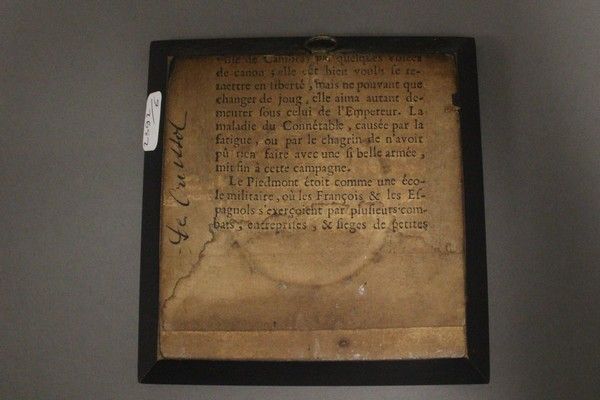 ville de Cambray par quelques volées
de canon ; elle eût bien voulu se re-
mettre en liberté, mais ne pouvant que
changer de joug, elle aima autant de-
meurer sous celui de l'Empereur. La
maladie du Connétable, causée par la
fatigue, ou par le chagrin de n'avoit
pû rien faire avec une si belle armée,
mit fin à cette campagne.
Le Piedmont étoit comme une éco-
le militaire, où les François & les Es-
pagnols s'exerçoient par plusieurs com-
bats, entreprises, & sieges de petites